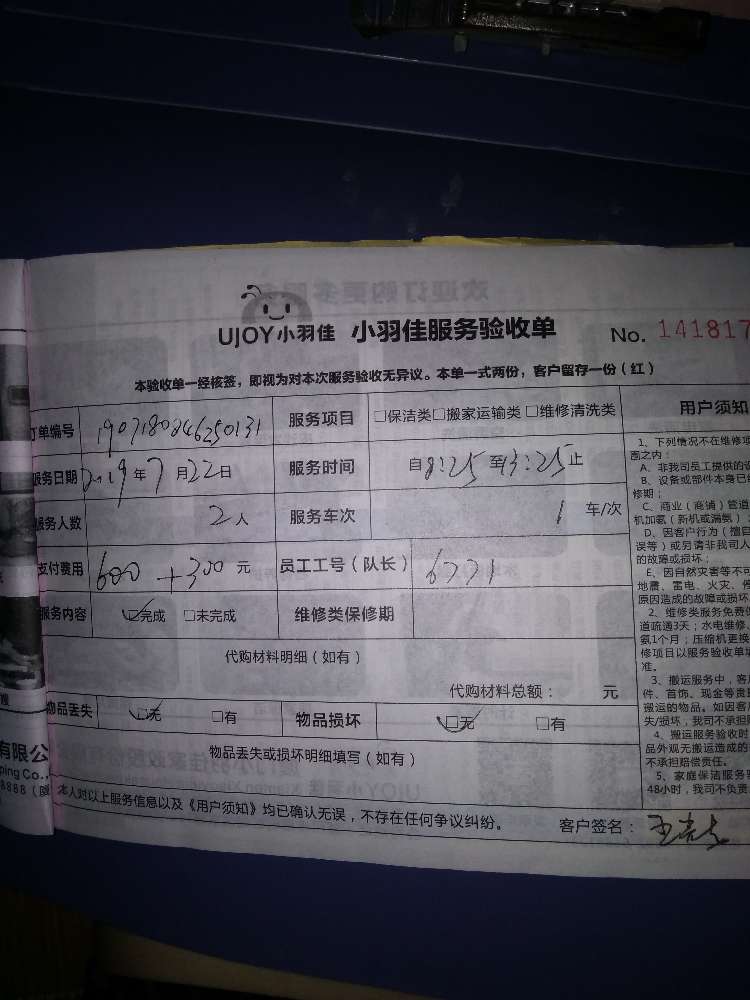 UJOY小羽佳 小羽佳服务验收单 No. 141817
本验收单一经核签，即视为对本次服务验收无异议。本单一式两份，客户留存一份（红）
订单编号 1907180846250131 服务项目 □保洁类□搬家运输类 □维修清洗类
服务日期 2019年7月22日 服务时间 自8:25至13:25止
服务人数 2人 服务车次 1 车/次
支付费用 600+300元 员工工号（队长） 6771
服务内容 ☑完成 □未完成 维修类保修期
代购材料明细（如有）
代购材料总额： 元
物品丢失 ☑无 □有 物品损坏 ☑无 □有
物品丢失或损坏明细填写（如有）
本人对以上服务信息以及《用户须知》均已确认无误，不存在任何争议纠纷。 客户签名：
用户须知
1、下列情况不在维修
围之内：
A、非我司员工提供的
B、设备或部件本身已
修期；
C、商业（商铺）管道
机加氨（新机或漏氨）
D、因客户行为（擅自
误等）或另请非我司人
的故障或损坏；
E、因自然灾害等不可
地震、雷电、火灾、
原因造成的故障或损坏
2、维修类服务免费
道疏通3天；水电维修、
氨1个月；压缩机更换
修项目以服务验收单
准。
3、搬运服务中，客
件、首饰、现金等贵
搬运的物品。如因客
失/损坏，我司不承担
4、搬运服务验收时
品外观无搬运造成的
不承担赔偿责任。
5、家庭保洁服务
48小时，我司不负责
有限公
ping Co.,
8888